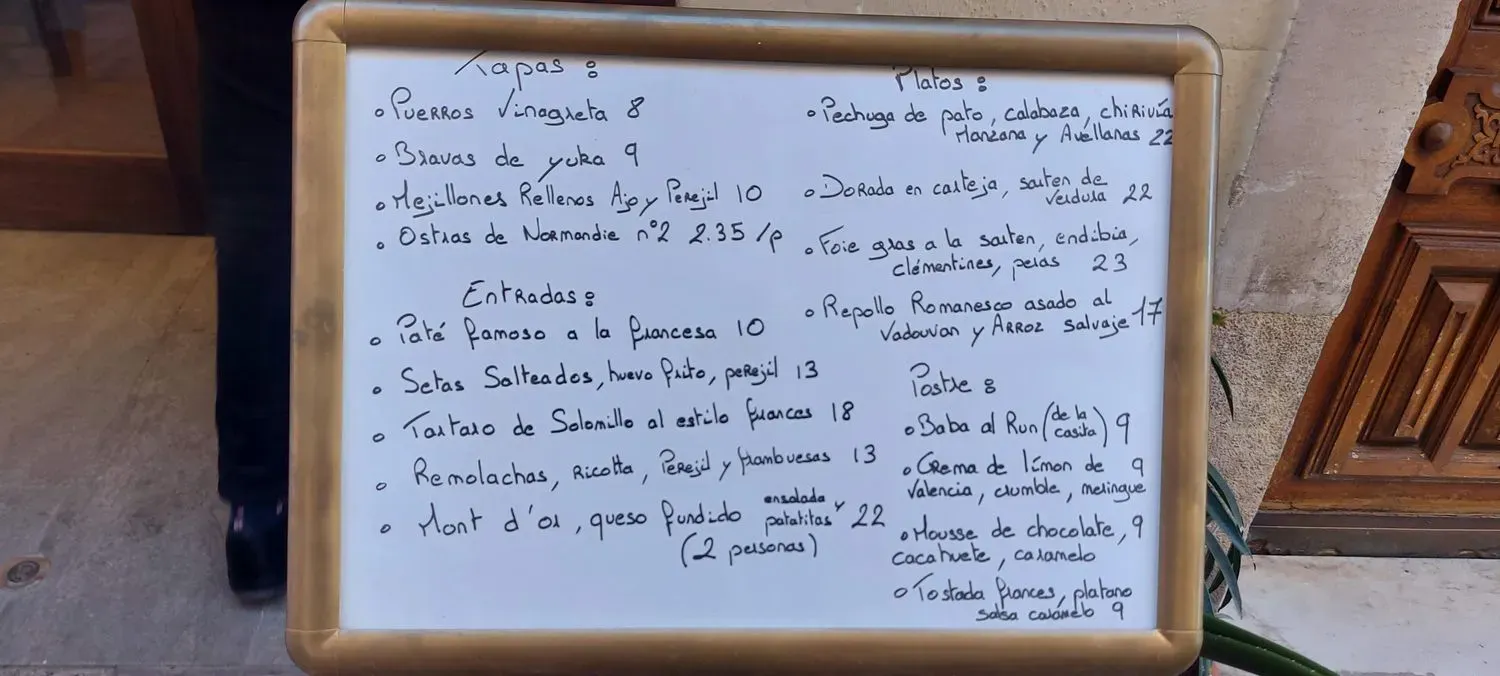 Tapas :
• Puerros Vinagreta 8
• Bravas de yuka 9
• Mejillones Rellenos Ajo y Perejil 10
• Ostras de Normandie n°2 2.35 /p
Entradas :
• Paté famoso a la francesa 10
• Setas Salteados, huevo frito, perejil 13
• Tartaro de Solomillo al estilo frances 18
• Remolachas, Ricotta, Perejil y frambuesas 13
• Mont d'or, queso fundido ensalada y
patatitas 22
(2 personas)
Platos :
• Pechuga de pato, calabaza, chirivía
Manzana y Avellanas 22
• Dorada en carteja, sarten de
verdura 22
• Foie gras a la sarten, endibia,
clémentines, peras 23
• Repollo Romanesco asado al
Vadouvan y Arroz salvaje 17
Postre :
• Baba al Run (de la
casita) 9
• Crema de límon de 9
Valencia, crumble, meringue
• Mousse de chocolate, 9
cacahuete, caramelo
• Tostada frances, platano
salsa caramelo 9